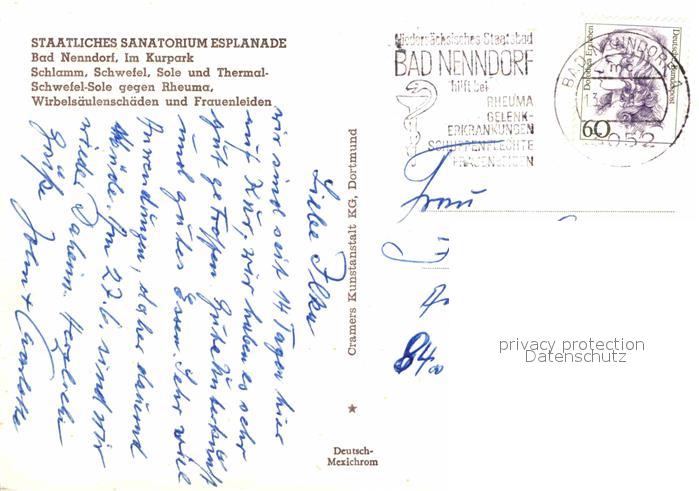 STAATLICHES SANATORIUM ESPLANADE
Bad Nenndorf, Im Kurpark
Schlamm, Schwefel, Sole und Thermal-
Schwefel-Sole gegen Rheuma,
Wirbelsäulenschäden und Frauenleiden
Liebe Ilka
wir sind seit 14 Tagen hier
auf Kur, wir haben es sehr
gut getroffen. Gute Unterkunft
und gutes Essen. Sehr viel
Anwendungen, daher dauernd
Müde. Am 27.6. sind wir
wieder Daheim. Herzliche
Grüße John +
Cramers Kunstanstalt KG, Dortmund
Deutsch-
Mexichrom
Niedersächsisches Staatsbad
BAD NENNDORF
hilft bei
RHEUMA
GELENK-
ERKRANKUNGEN
SCHUPPENFLECHTE
FRAUENLEIDEN
BAD NENNDORF
3052
Deutsche Bundespost
60
Frau
84
privacy protection
Datenschutz